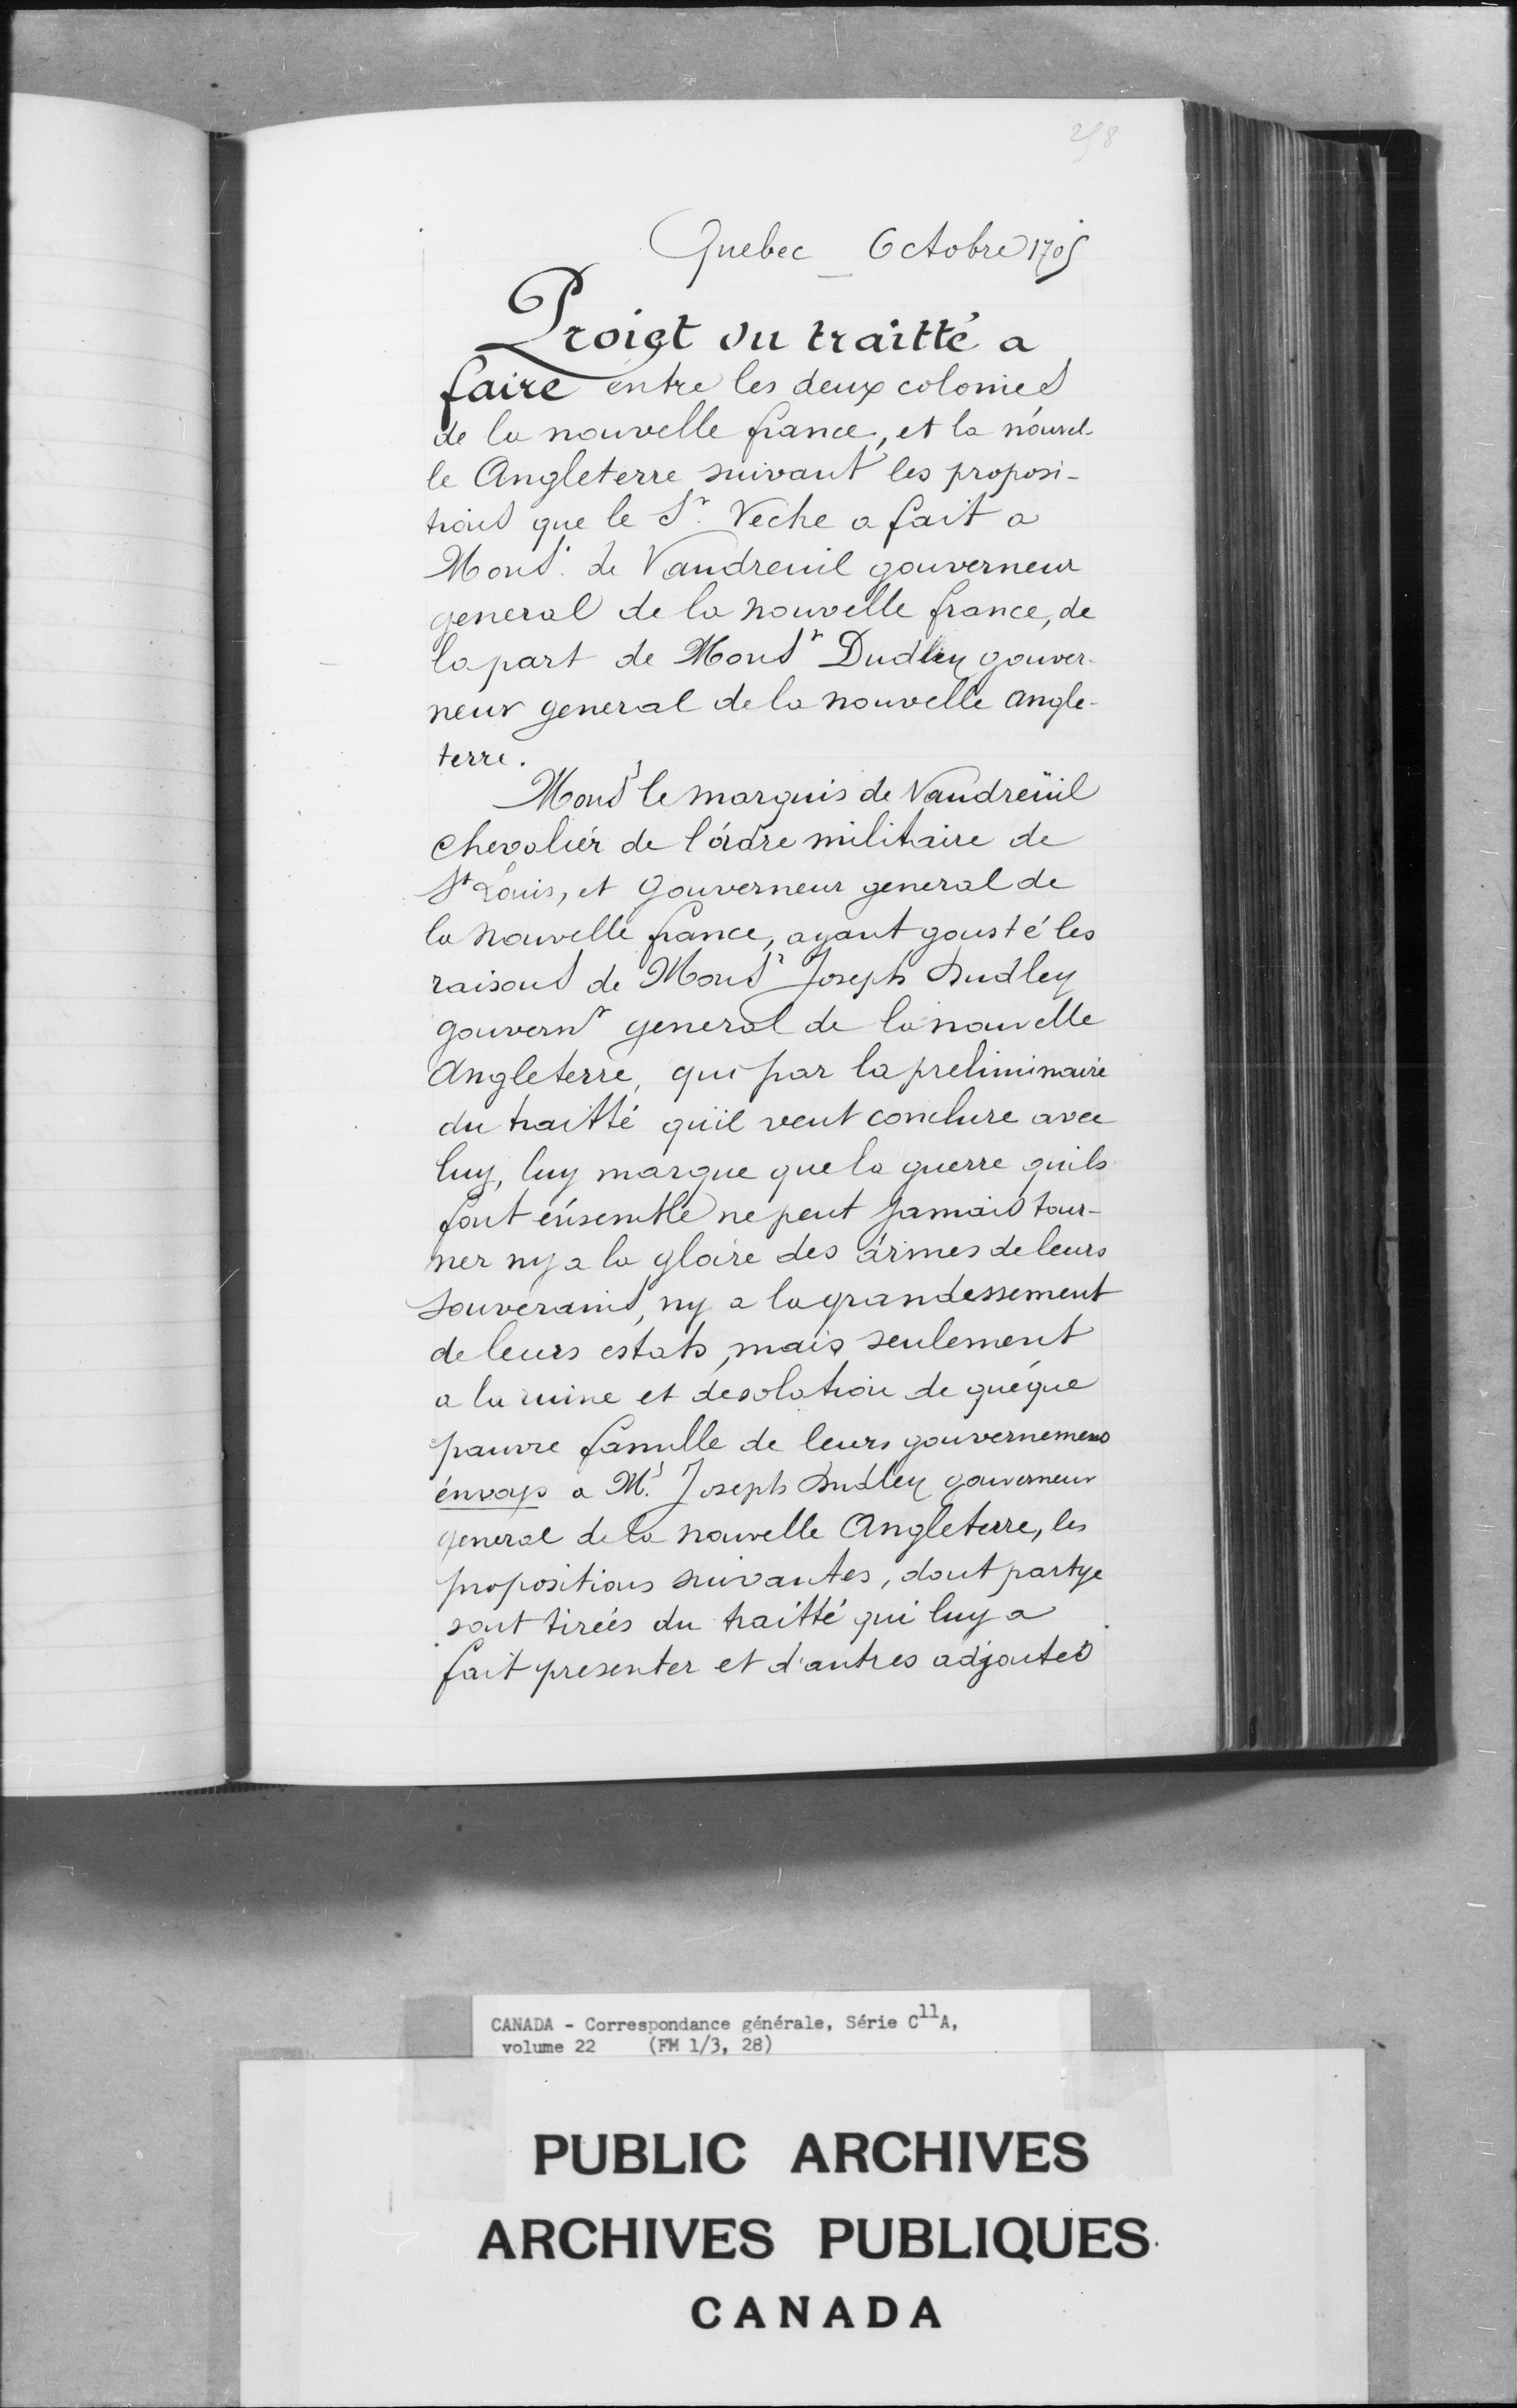 258
Quebec _ Octobre 1705
Proiet du traitté a
faire entre les deux colonies
de la nouvelle france, et la nouvel-
le Angleterre suivant les proposi-
tions que le Sr. Veche a fait a
Monsr. de Vaudreuil gouverneur
general de la nouvelle france, de
la part de Monsr Dudley gouver-
neur general de la nouvelle angle-
terre.
Monsr le marquis de Vaudreüil
chevaliér de l'órdre militaire de
St Louis, et Gouverneur general de
la nouvelle france, ayant gousté les
raisons de Monsr Joseph dudley
gouvernr general de la nouvelle
Angleterre, qui par la preliminaire
du traitté qúil veut conclure avec
luy, luy marque que la guerre quils
font énsemble ne peut Jamais tour-
ner ny a la gloire des ármes de leurs
souverains, ny a lagrandessement
de leurs estats, mais seulement
a la ruine et desolation de quéque
pauvre famille de leurs gouvernemens
énvoye a Mr. Joseph dudley gouverneur
general de la nouvelle Angleterre, les
propositions suivantes, dont partye
sont tireés du traitté qui luy a
fait presenter et d'autres adjoutes
CANADA - Correspondance générale, Série C11A,
volume 22 (FM 1/3, 28)
PUBLIC ARCHIVES
ARCHIVES PUBLIQUES
CANADA